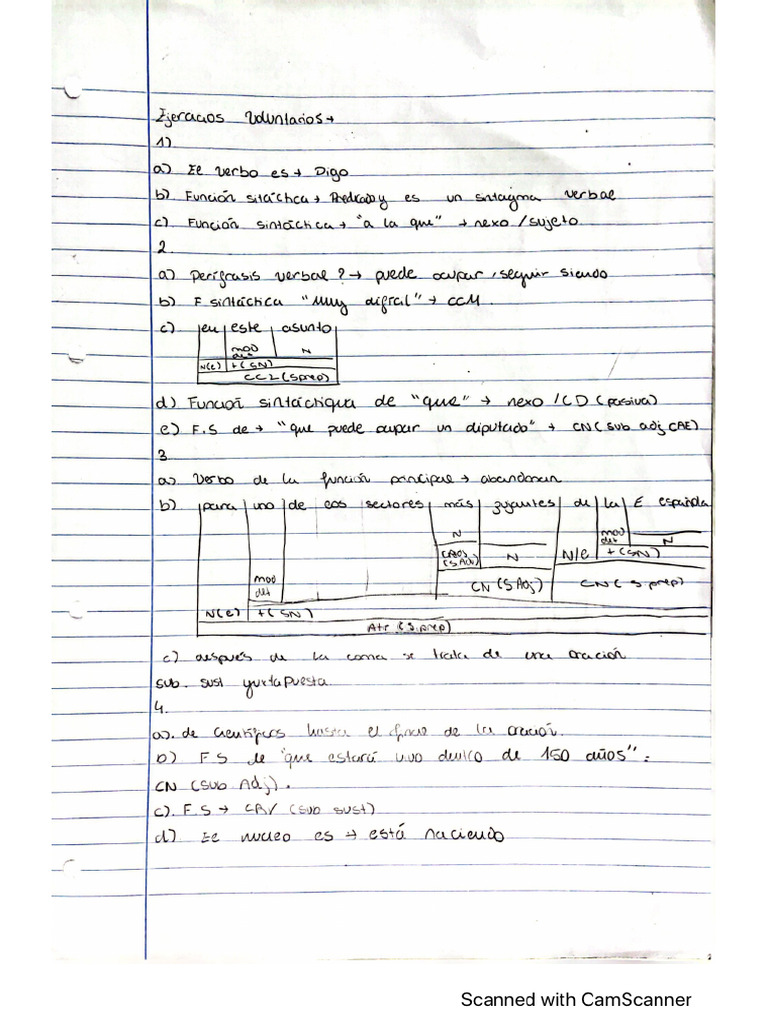 Ejercicios Voluntarios →
1)
a) El verbo es → Digo
b) Función sitáctica → Predicado y es un sintagma verbal
c) Función sintáctica → "a la que" → nexo / sujeto
2.
a) Perífrasis verbal? → puede ocupar, seguir siendo
b) F sintáctica "muy difícil" → CCM.
c) en este asunto
mod det N
N(e) + (SN)
CCL (Sprep)
d) Función sintáctiqua de "que" → nexo / CD (pasiva)
e) F.S de → "que puede ocupar un diputado" → CN (sub adj CAE)
3.
a) Verbo de la función principal → abandonan
b) para uno de los sectores más de la E española
N mod det N
CAdj (S Adj) N N/e + (SN)
mod det CN (S Adj) CN (S prep)
N(e) + (SN)
Atr (S.prep)
c) después de la coma se trata de una oración
sub. sust yuxtapuesta.
4.
a). de científicos hasta el final de la oración.
b) F S de "que estará vivo dentro de 150 años":
CN (Sub Adj).
c). F.S → (sub sust)
d) El nucleo es → está naciendo
Scanned with CamScanner